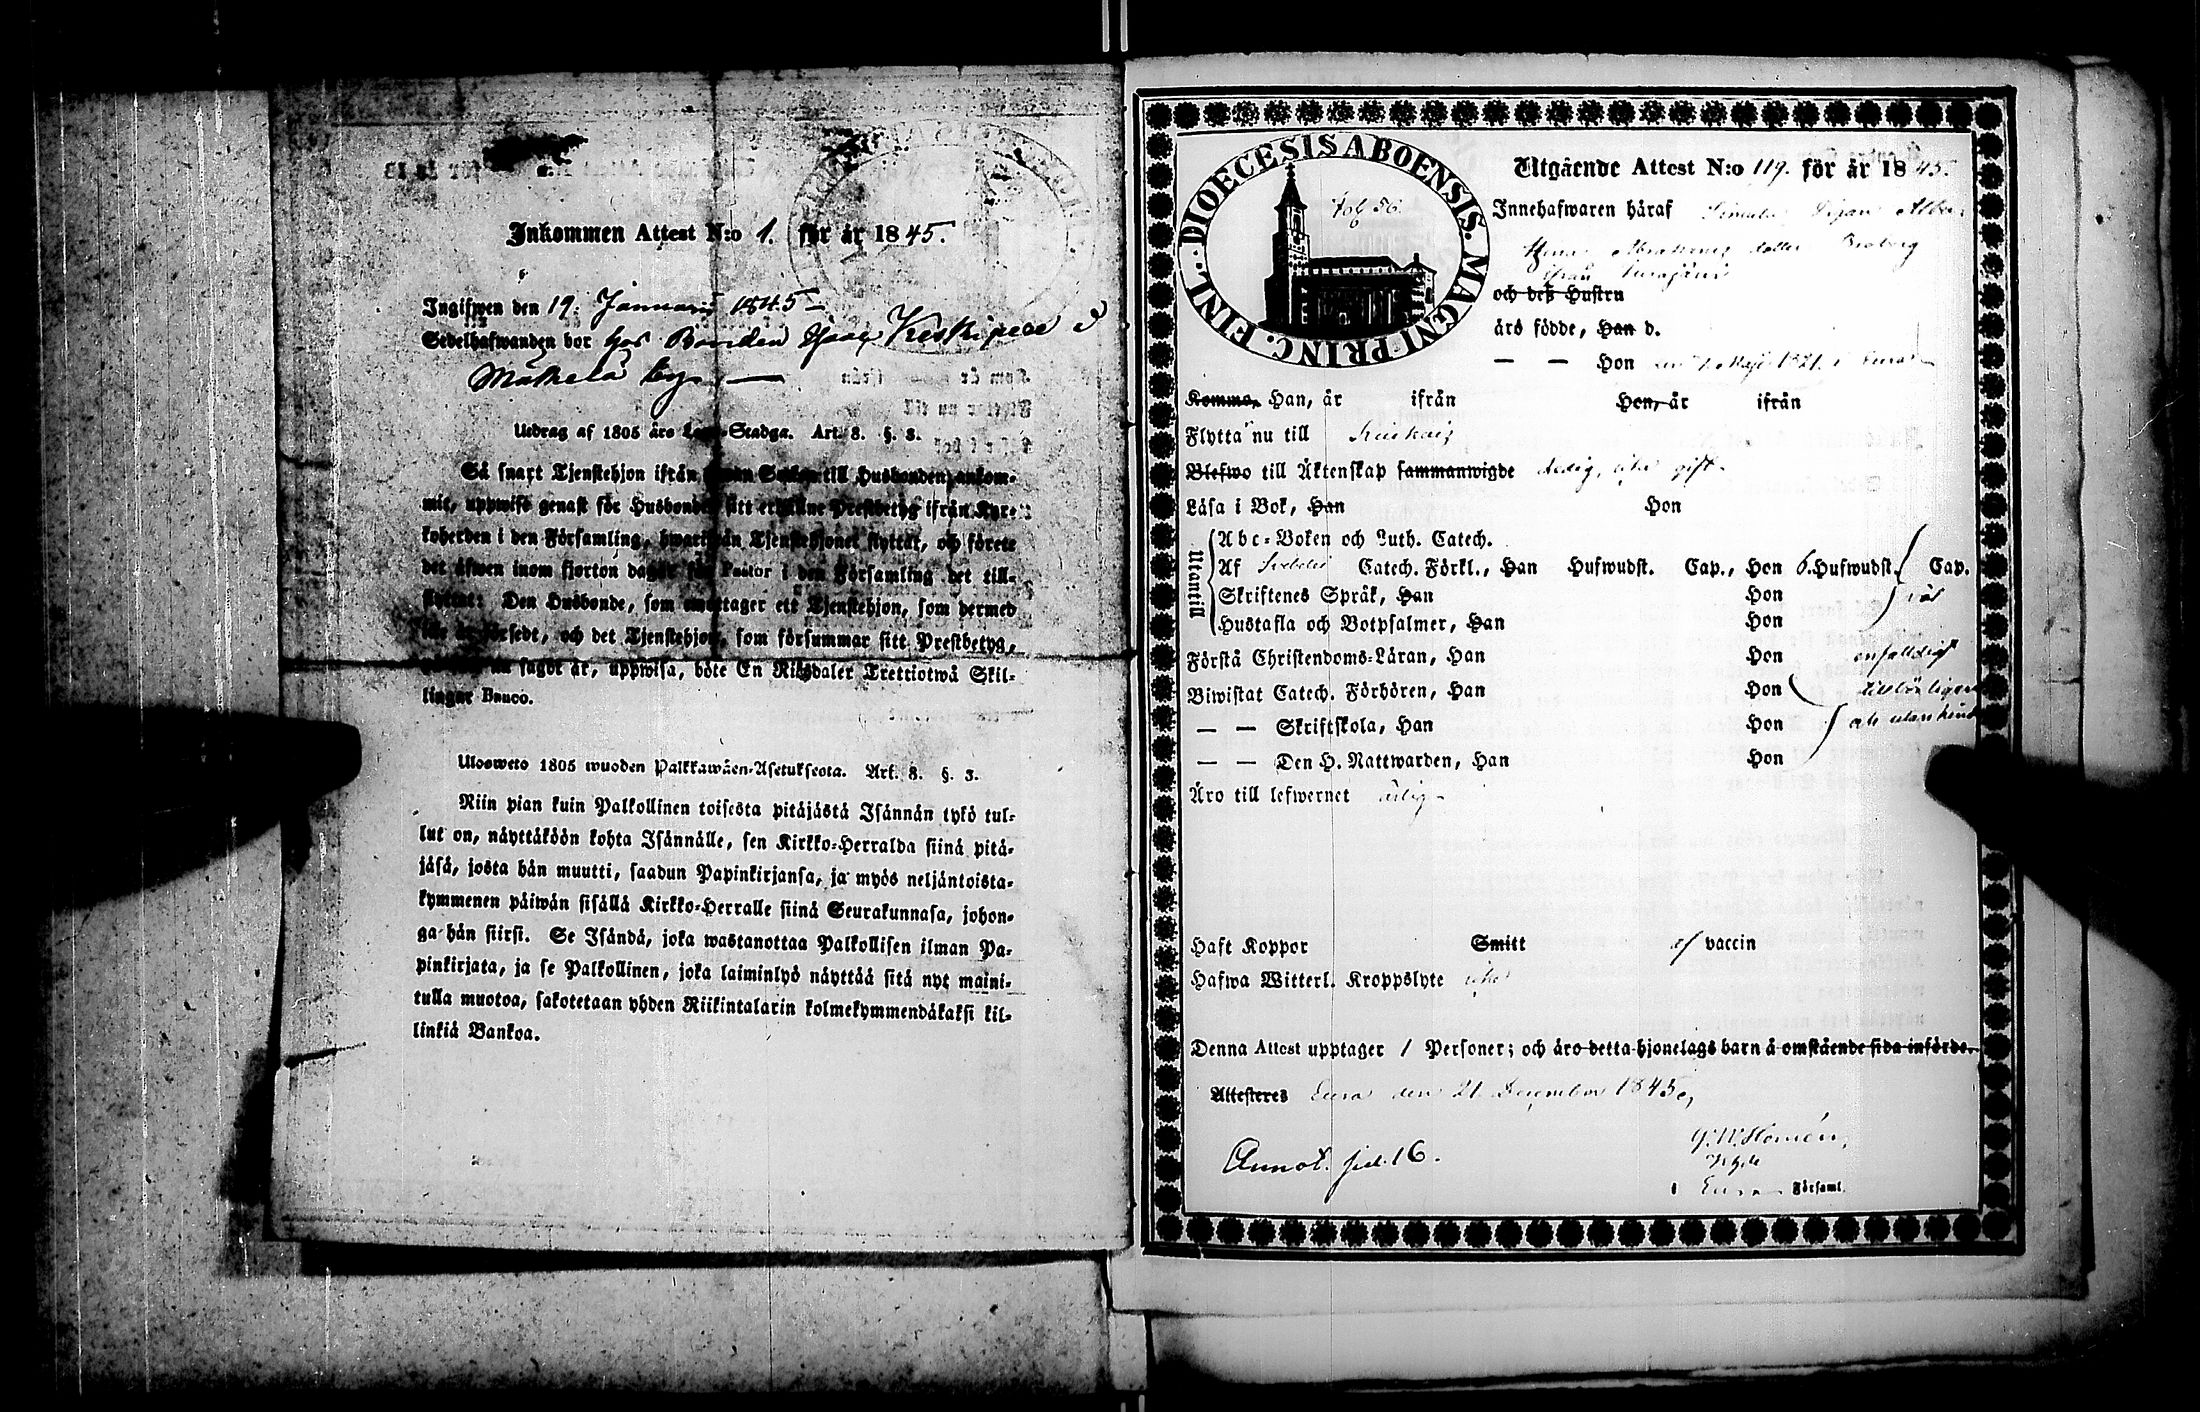 Inkommen Attest N:o 1. för år 1845.
Ingifwen den 19. Januari 1845
Sedelhafwanden bor hos Bonden
Mäkelä by
Utdrag af 1805 års Lego-Stadga. Art. 8. §. 3.
Så snart Tjenstehjon ifrån annan Socken till Husbonden ankom-
mit, uppwise genast för Husbonden sitt erhållne Prestbetyg ifrån Kyr-
koherden i den Församling, hwarifrån Tjenstehjonet flyttat, och förete
det äfwen inom fjorton dagar för Pastor i den Församling det till-
flyttat: Den Husbonde, som emottager ett Tjenstehjon, som dermed
icke är försedt, och det Tjenstehjon, som försummar sitt Prestbetyg,
på sätt nu sagdt är, uppwisa, böte En Riksdaler Tretiotwå Skil-
lingar Banco.
Ulosweto 1805 wuoden Palkkawäen-Asetuksesta. Art. 8. §. 3.
Niin pian kuin Palkollinen toisesta pitäjästä Isännän tykö tul-
lut on, näyttäköön kohta Isännälle, sen Kirkko-Herralda siinä pitä-
jäsä, josta hän muutti, saadun Papinkirjansa, ja myös neljäntoista-
kymmenen päiwän sisällä Kirkko-Herralle siinä Seurakunnasa, johon-
ga hän siirsi. Se Isändä, joka wastanottaa Palkollisen ilman Pa-
pinkirjata, ja se Palkollinen, joka laiminlyö näyttää sitä nyt maini-
tulla muotoa, sakotetaan yhden Riikintalarin kolmekymmendäkaksi kil-
linkiä Bankoa.
DIOECESIS ABOENSIS. MAGNI PRINC. FINL.
fol. 56.
Utgående Attest N:o 119. för år 1845.
Innehafwaren häraf Pigan
Abrahams dotter
från
och deß Hustru
äro födde, Han d.
— — Hon den Maji 1821. i Eura
Komma, Han, år ifrån Hon, år ifrån
Flytta nu till
Blefwo till Äktenskap sammanwigde ledig, icke gift
Läsa i Bok, Han Hon
Utantill
Abc-Boken och Luth. Catech.
Af Svebelii Catech. Förkl., Han Hufwudst. Cap., Hon 6. Hufwudst. Cap.
Skriftenes Språk, Han Hon
Hustafla och Botpsalmer, Han Hon
Förstå Christendoms-Läran, Han Hon enfaldigt
Biwistat Catech. Förhören, Han Hon
— — Skriftskola, Han Hon
— — Den H. Nattwarden, Han Hon
Äro till lefwernet ärlig
Haft Koppor Smitt af vaccin
Hafwa Witterl. Kroppslyte icke
Denna Attest upptager 1 Personer; och äro detta hjonelags barn å omstående sida införde.
Attesteres Eura den 21 December 1845,
G. W. Homén,
Annot. fol. 16.
i Eura Församl.